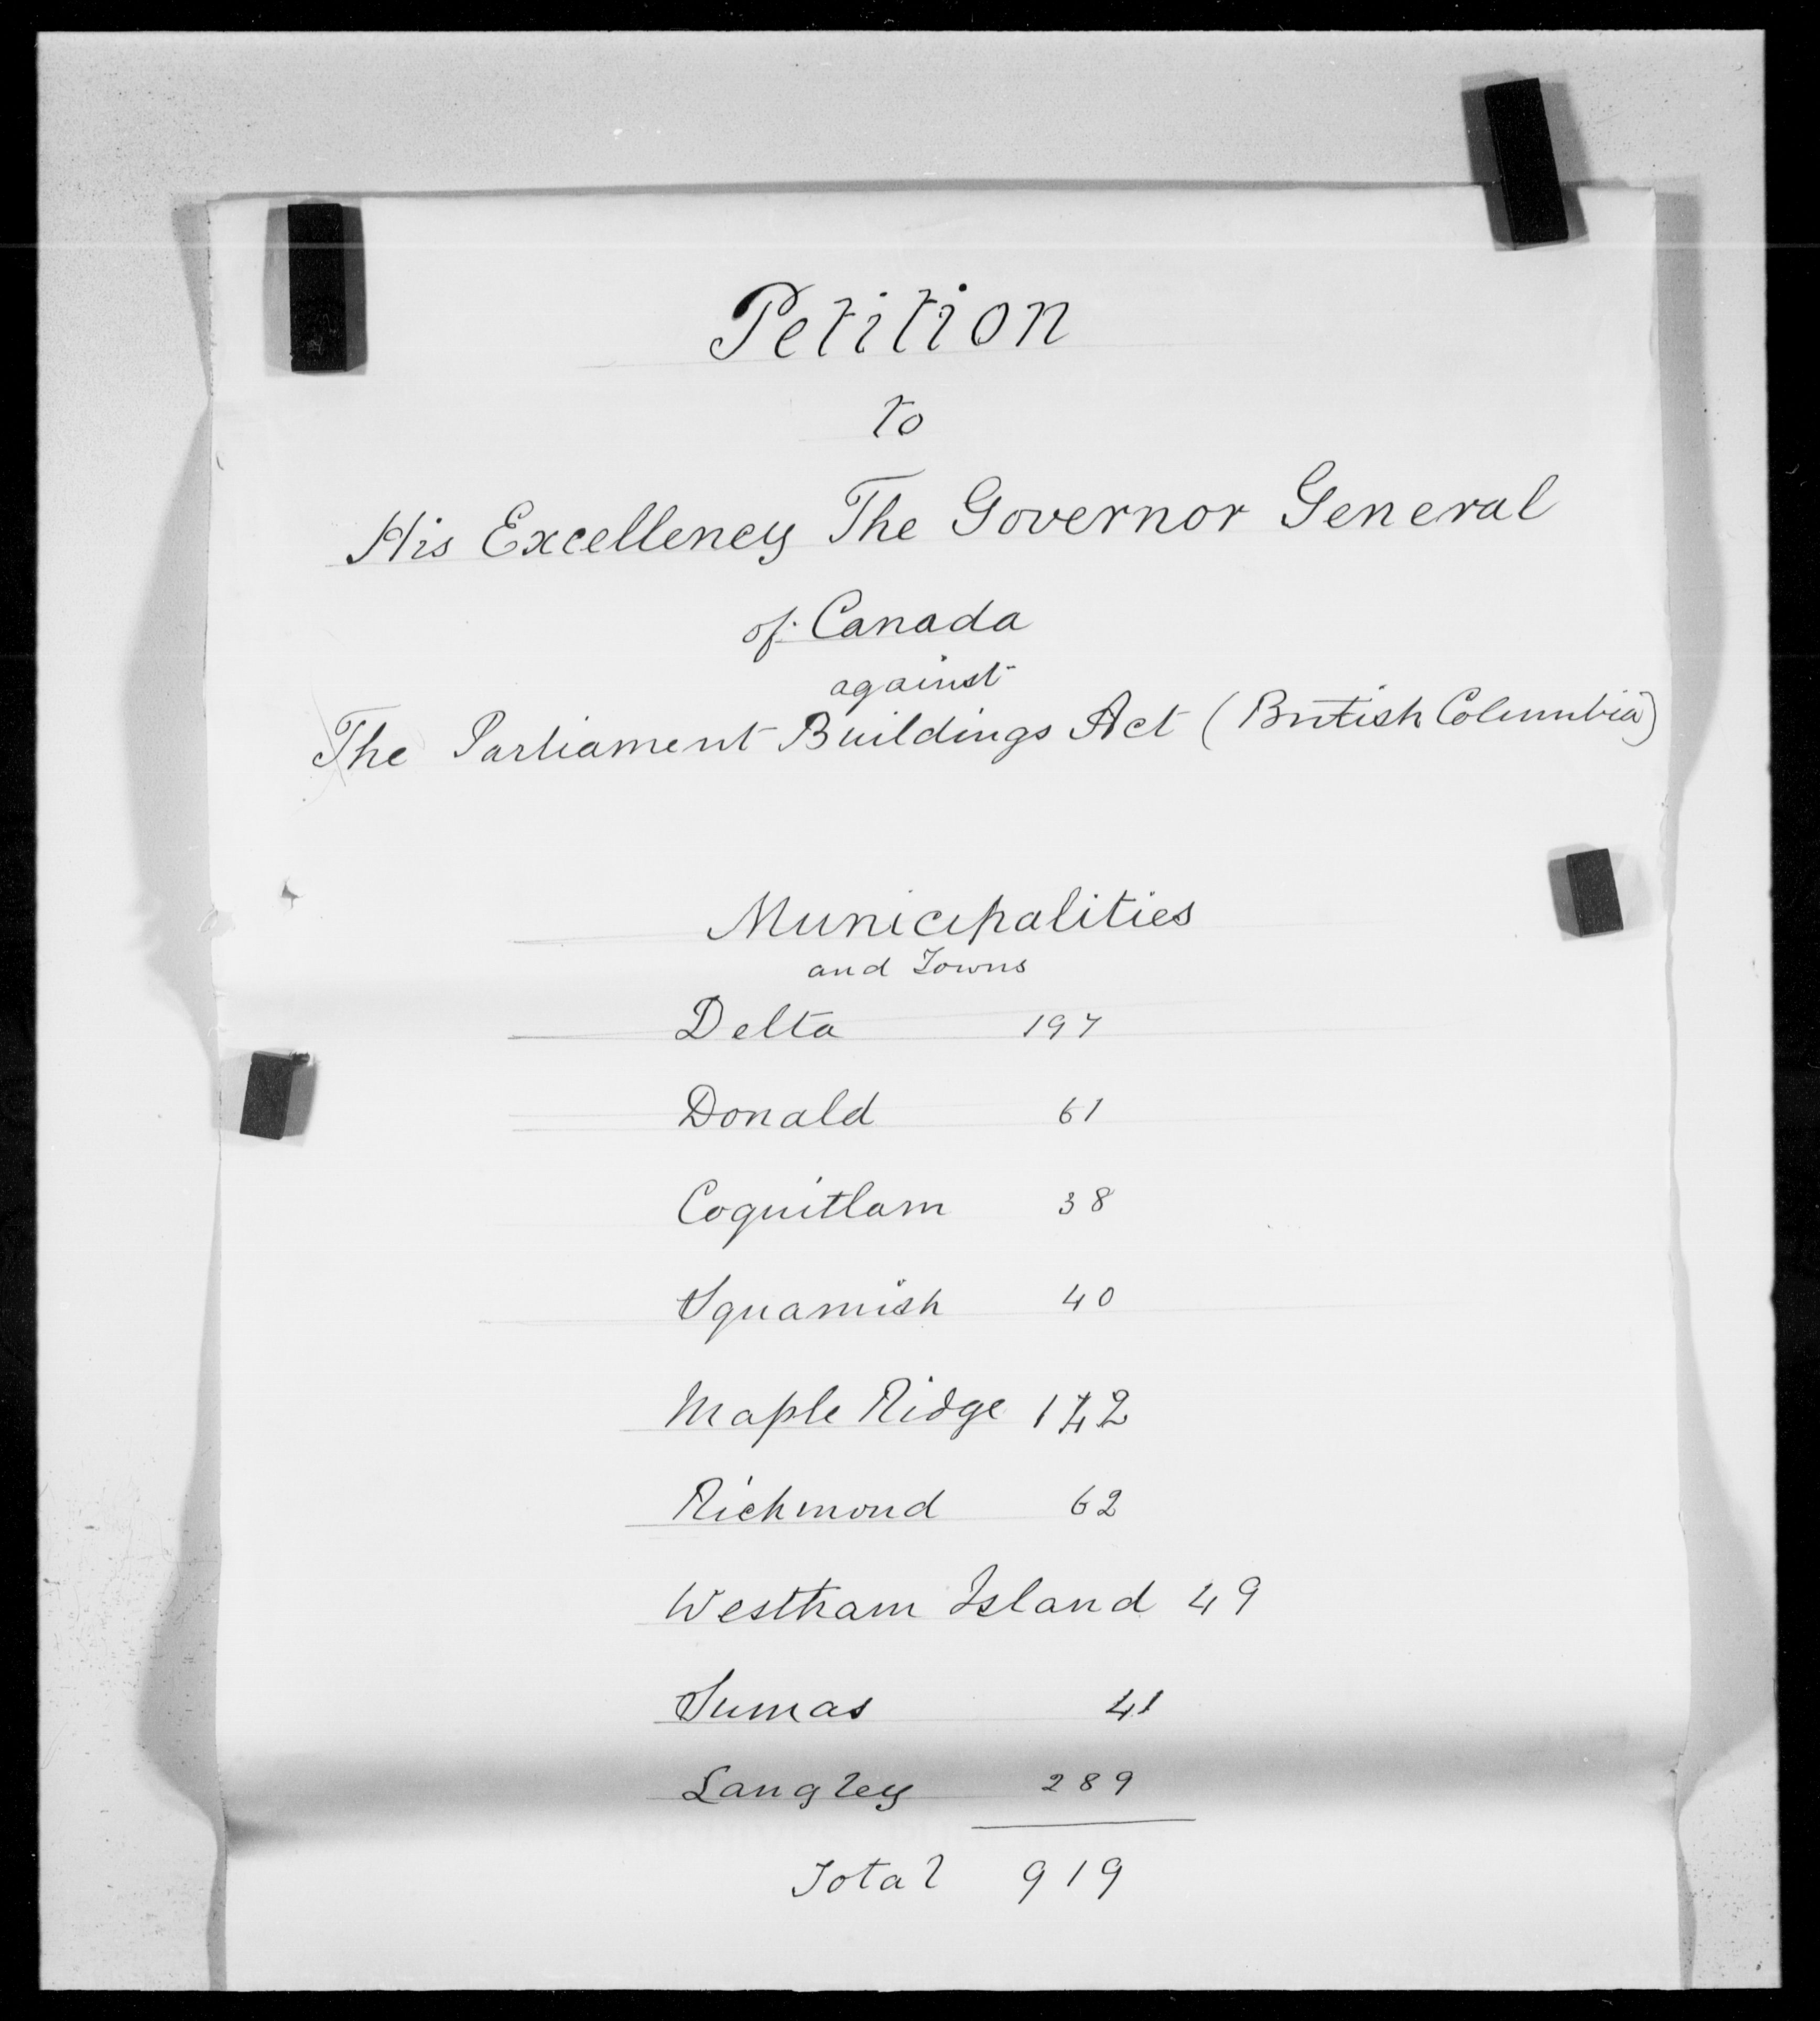 Petition
to
His Excellency The Governor General
of Canada
against
The Parliament Buildings Act (British Columbia)
Municipalities
and Towns
Delta 197
Donald 61
Coquitlam 38
Squamish 40
Maple Ridge 142
Richmond 62
Westham Island 49
Sumas 41
Langley 289
Total 919